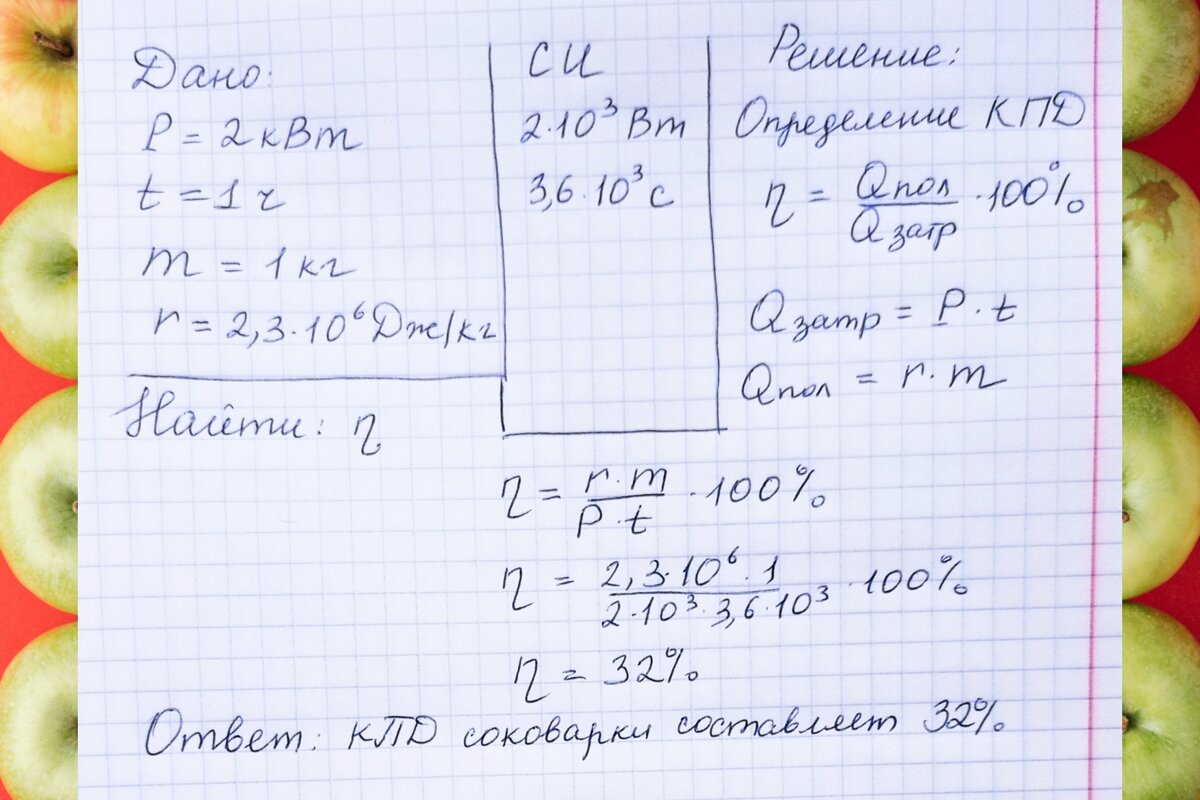 Дано:
P = 2 кВт
t = 1 ч
m = 1 кг
r = 2,3·10⁶ Дж/кг
Найти: η
СИ
2·10³ Вт
3,6·10³ с
Решение:
Определение КПД
η = Qпол / Qзатр · 100%
Qзатр = P · t
Qпол = r · m
η = r · m / P · t · 100%
η = 2,3·10⁶ · 1 / 2·10³ · 3,6·10³ · 100%
η = 32%
Ответ: КПД соковарки составляет 32%